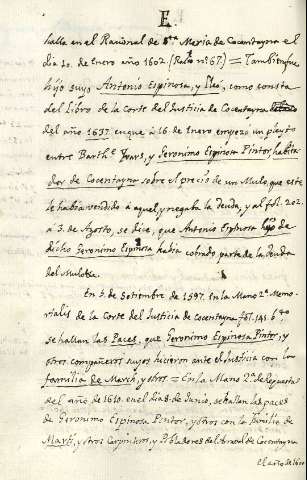 E.
halla en el Racional de Sta. Maria de Cocentayna el
dia 20. de Enero año 1602 (Racl. nº. 67.) = Tambien fue
hijo suyo Antonio Espinosa, y como consta
del Libro de la Corte del Justicia de Cocentayna
del año 1637. en que à 16. de Enero empezo un pleyto
entre Barthe. Juars, y Geronimo Espinosa Pintor, habita
dor de Cocentayna sobre el precio de un Mulo, que este
le habia vendido à aquel, y negaba la deuda, y al fol. 202.
à 3. de Agosto, se dice, que Antonio Espinosa hijo de
dicho Geronimo Espinosa habia cobrado parte de la deuda
del Mulo
En 5. de Setiembre de 1597. en la Mano 2ª. Memo-
rialis de la Corte del Justicia de Cocentayna fol. 141. bto.
se hallan las Paces, que Geronimo Espinosa Pintor, y
otros compañeros suyos hicieron ante el Justicia con los
familia de March, y otros = En la Mano 2ª. de Requestas
del año de 1610. en el dia 8. de Junio, se hallan las paces
de Geronimo Espinosa Pintor, y otros con la familia de
Martí, y otros Carpinteros, y Pobladores del Arraval de Cocentayna
el año de 1610